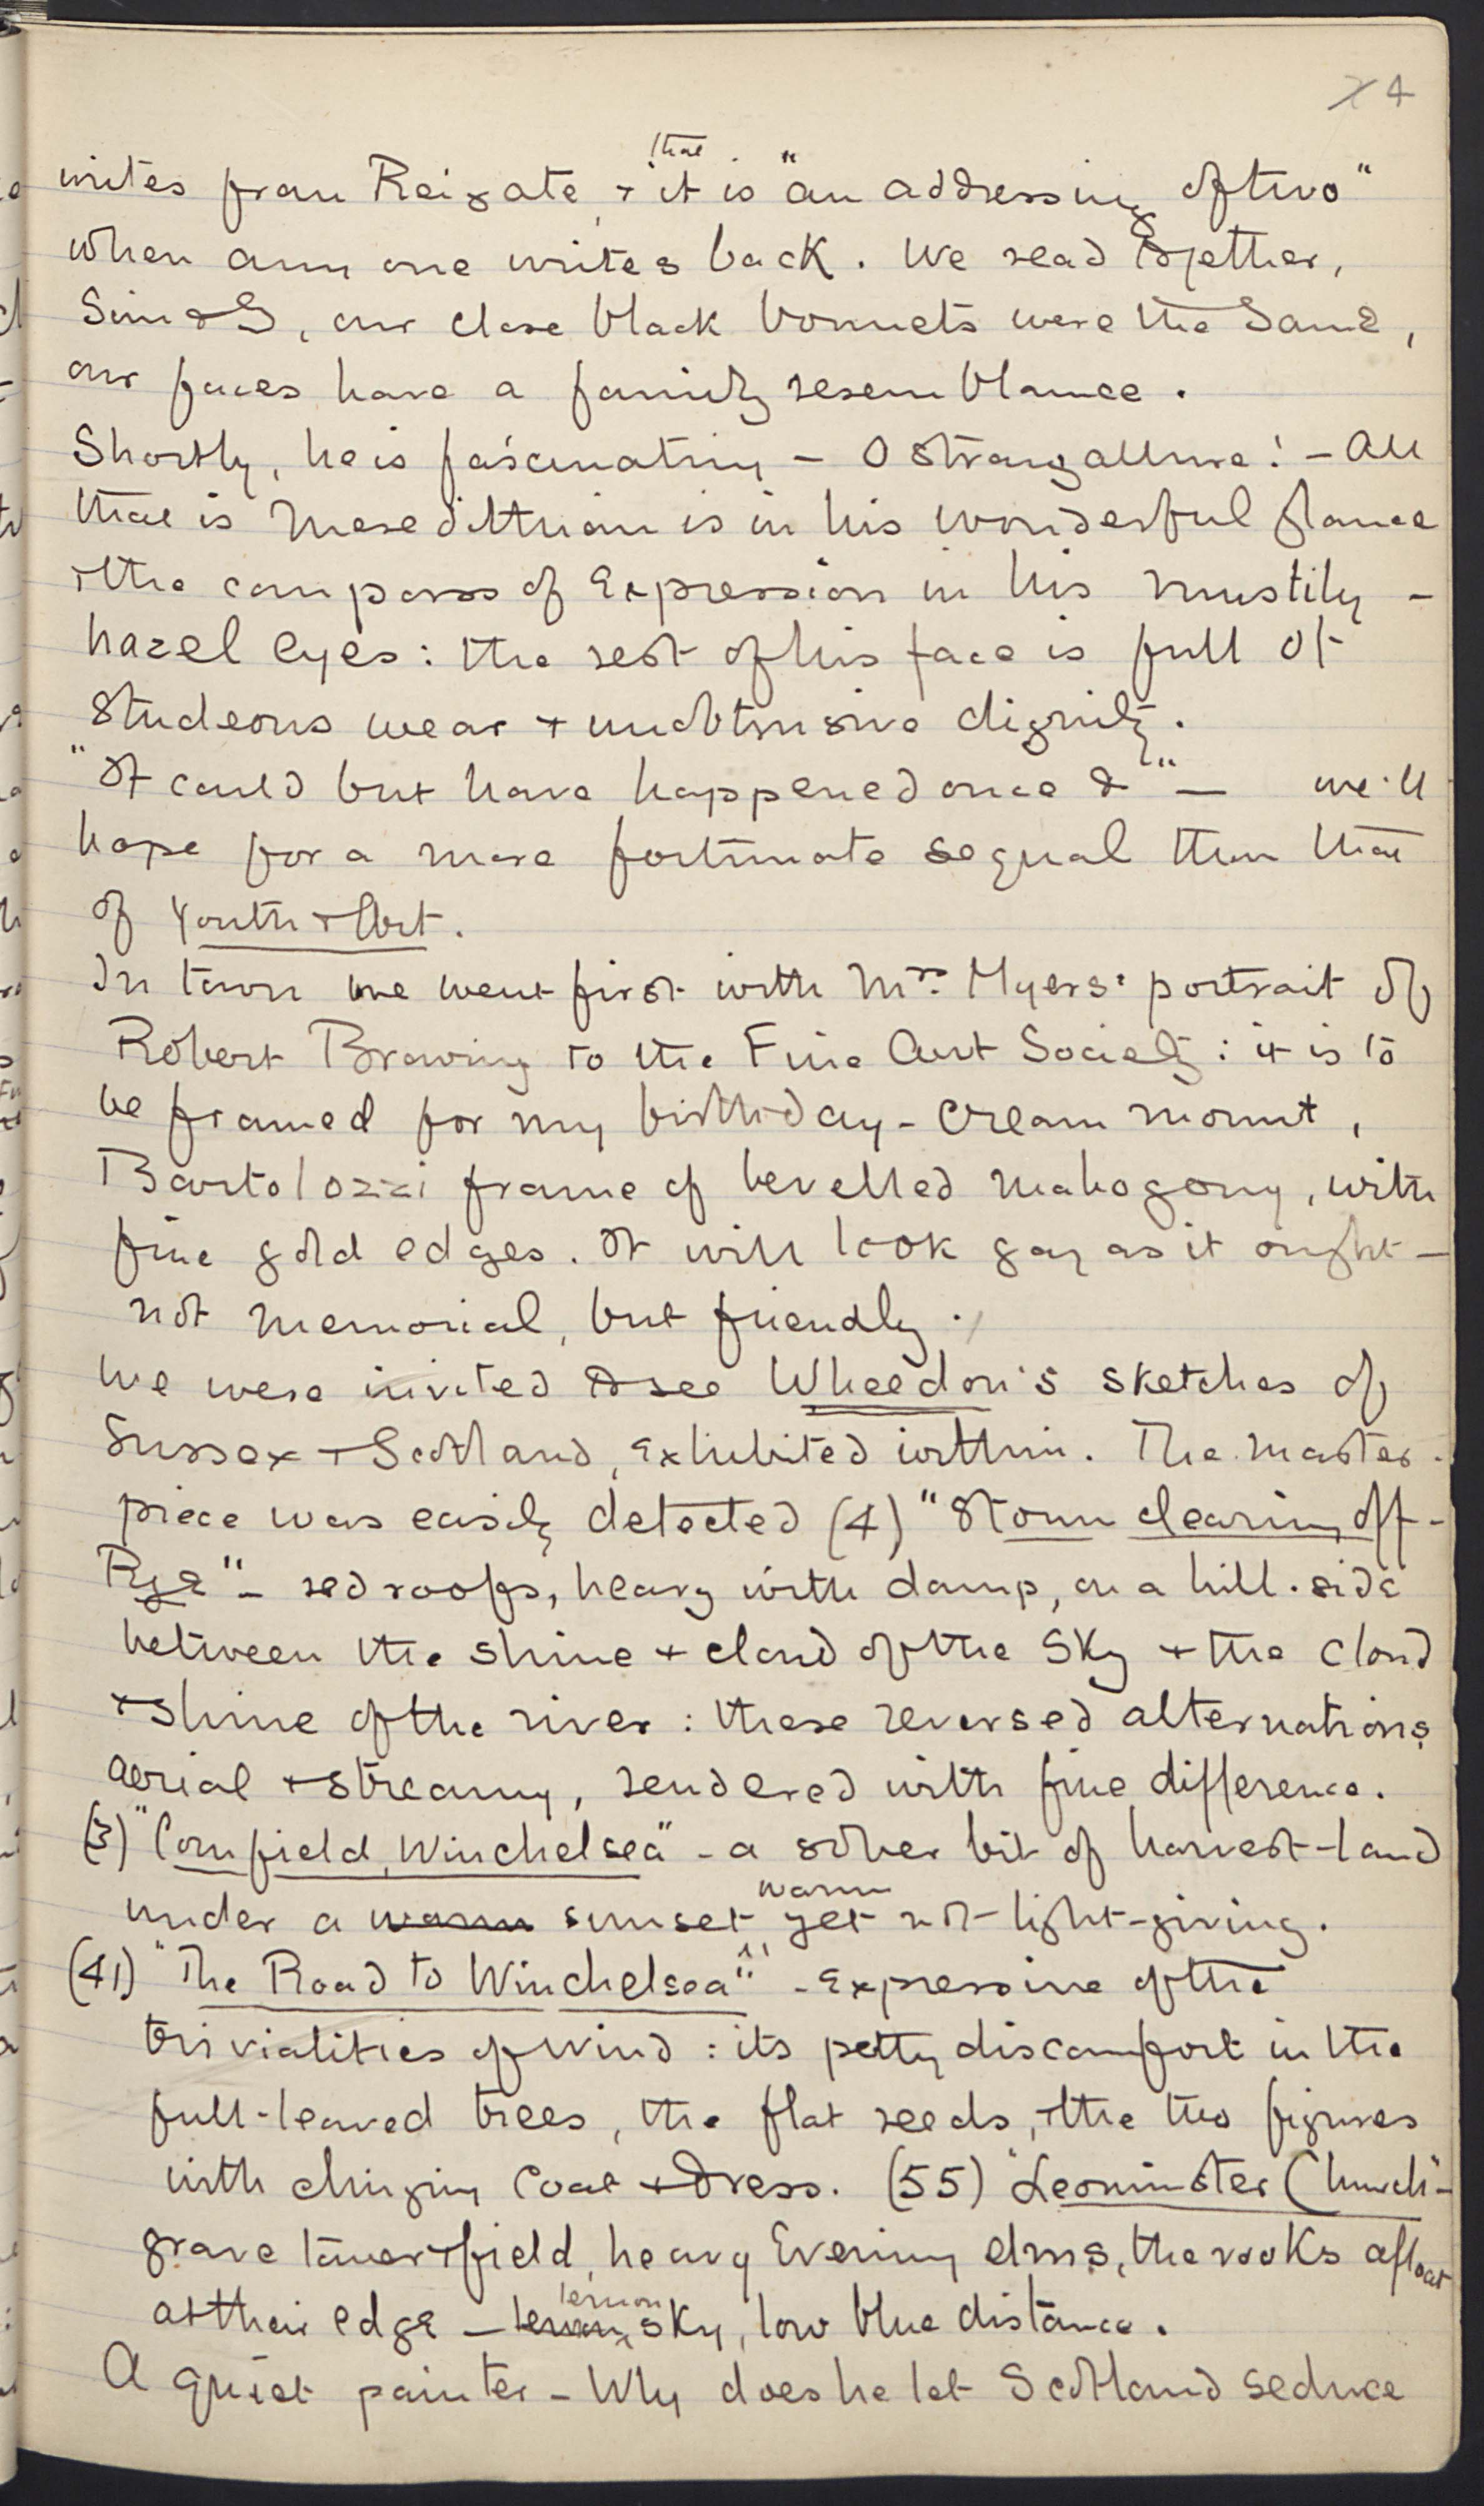 4
that
writes from Reigate, + it is "an addressing of two"
when any one writes back. We read together,
Sim & I, our close black bonnets were the same,
our faces have a family resemblance.
Shortly, he is fascinating – O strang allure! – All
that is Meredithian is in his wonderful glance
+ the compass of Expression in his mustily -
hazel eyes: the rest of his face is full of
studeous wear + unobtrusive dignity.
"It could but have happened once &" — we'll
hope for a more fortunate sequal than that
of Youth + Art.
In town we went first with Mrs. Myers' portrait of
Robert Browning to the Fine Art Society: it is to
be framed for my birthday - cream mount,
Bartolozzi frame of bevelled mahogony, with
fine gold edges. It will look gay as it ought —
not memorial, but friendly.
We were invited to see Wheedon's sketches of
Sussex + Scotland, Exhibited within. The master-
piece was easily detected (4) "Storm clearing off -
Rye" – red roofs, heavy with damp, on a hill-side
between the shine + cloud of the sky + the cloud
+ shine of the river: these reversed alternations
aerial + streamy, rendered with fine difference.
(3) "Cornfield, Winchelsea" - a sober bit of harvest-land
warm
under a warm sunset yet not light-giving.
(41) "The Road to Winchelsea" - Expressive of the
trivialities of wind: its petty discomfort in the
full-leaved trees, the flat reeds, + the two figures
with clinging coat + dress. (55) "Leominster Church" -
grave tower + field, heavy Evening elms, the rooks afloat
lemon
at their edge — sky, low blue distance.
A quiet painter – Why does he let Scotland seduce